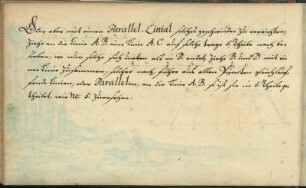 Das aber mit einem Parallel Linial solches geschwinder zu verrichten,
ziehe an die Linie A. B. eine Linie A. C. auf solche trage 6 Theile nach be
lieben, wo nun solche sich enden als in D. endet, ziehe B und D. mit ei
ner Linie zusammen, hernach führe aus allen Puncten gleichlauf
fende Linien, oder Parallelen, an die Linie A. B. so ist sie in 6 Theile ge
theilet, wie No. 6. zu ersehen.